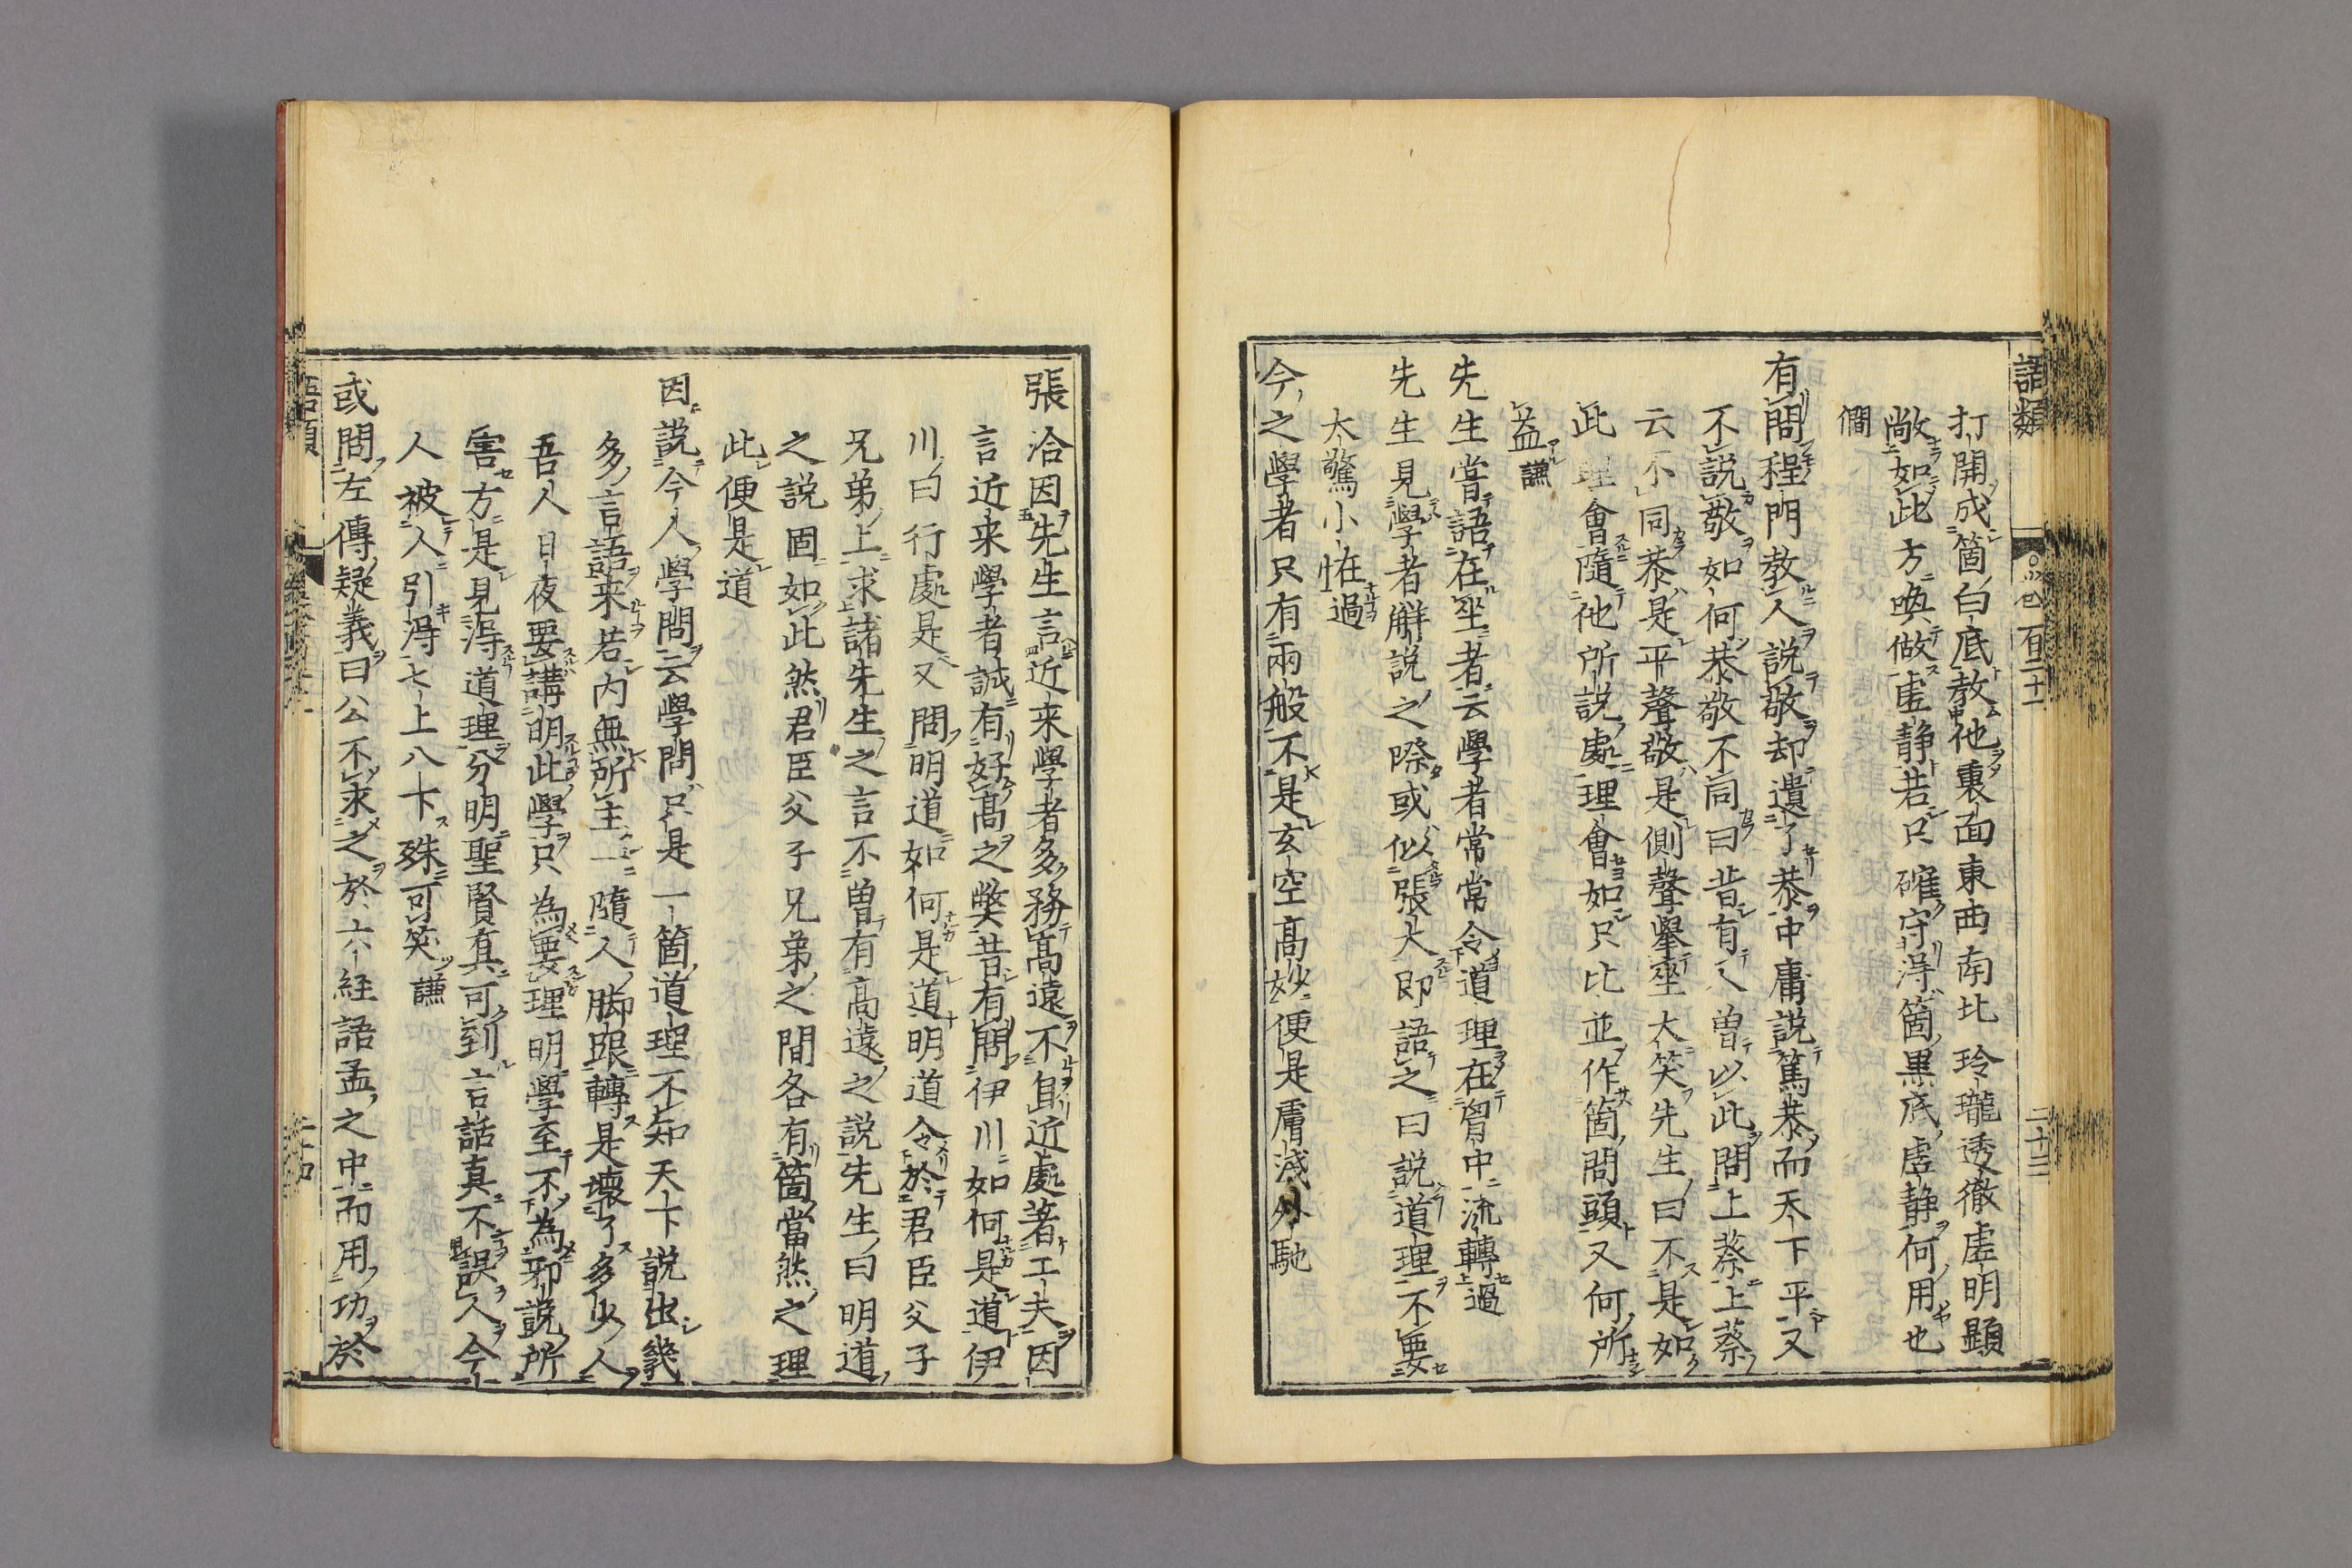 語類
百二十一
二十三
打開成箇白底教他裏面東西南北玲瓏透徹虚明顯
敞如此方喚做虚静若只確守淂箇黒底虚静何用也
僩
有問程門教人説敬却遺了恭中庸説篤恭而天下平又
不説敬如何恭敬不同曰昔有人曽以此問上蔡上蔡
云不同恭是平聲敬是側聲擧坐大笑先生曰不是如
此理會隨他所説處理會如只比並作箇問頭又何所
益謙
先生嘗語在坐者云學者常常令道理在胷中流轉過
先生見學者解説之際或似張大即語之曰説道理不要
大驚小恠過
今之學者只有兩般不是玄空高妙便是膚浅外馳
張洽因先生言近来學者多務髙遠不自近處著工夫因
言近来學者誠有好髙之獘昔有問伊川如何是道伊
川曰行處是又問明道如何是道明道令於君臣父子
兄弟上求諸先生之言不曽有高遠之説先生曰明道
之説固如此然君臣父子兄弟之間各有箇當然之理
此便是道
因説今人學問云學問只是一箇道理不知天下説出幾
多言語来若内無所主一隨人脚跟轉是壊了多少人
吾人日夜要講明此學只為要理明學至不為邪説所
害方是見淂道理分明聖賢真可到言話真不誤人今
人被人引淂七上八下殊可笑謙
或問左傳疑義曰公不求之於六経語孟之中而用功於
語類